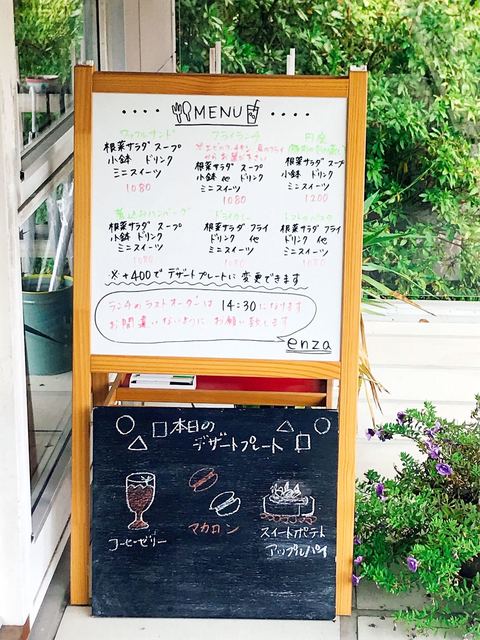 MENU
ワッフルサンド
根菜サラダ スープ
小鉢 ドリンク
ミニスイーツ
1080
フライランチ
根菜サラダ スープ
小鉢 他 ドリンク
ミニスイーツ
1080
円座
根菜サラダ スープ
小鉢 ドリンク
ミニスイーツ
1200
煮込みハンバーグ
根菜サラダ スープ
小鉢 ドリンク
ミニスイーツ
1080
ドライカレー
根菜サラダ フライ
ドリンク 他
ミニスイーツ
1080
根菜サラダ フライ
ドリンク 他
ミニスイーツ
1080
※ +400で デザートプレートに 変更できます
ランチのラストオーダーは 14:30になります
お間違いないように お願い致します
enza
本日の
デザートプレート
コーヒーゼリー
マカロン
スイートポテト
アップルパイ